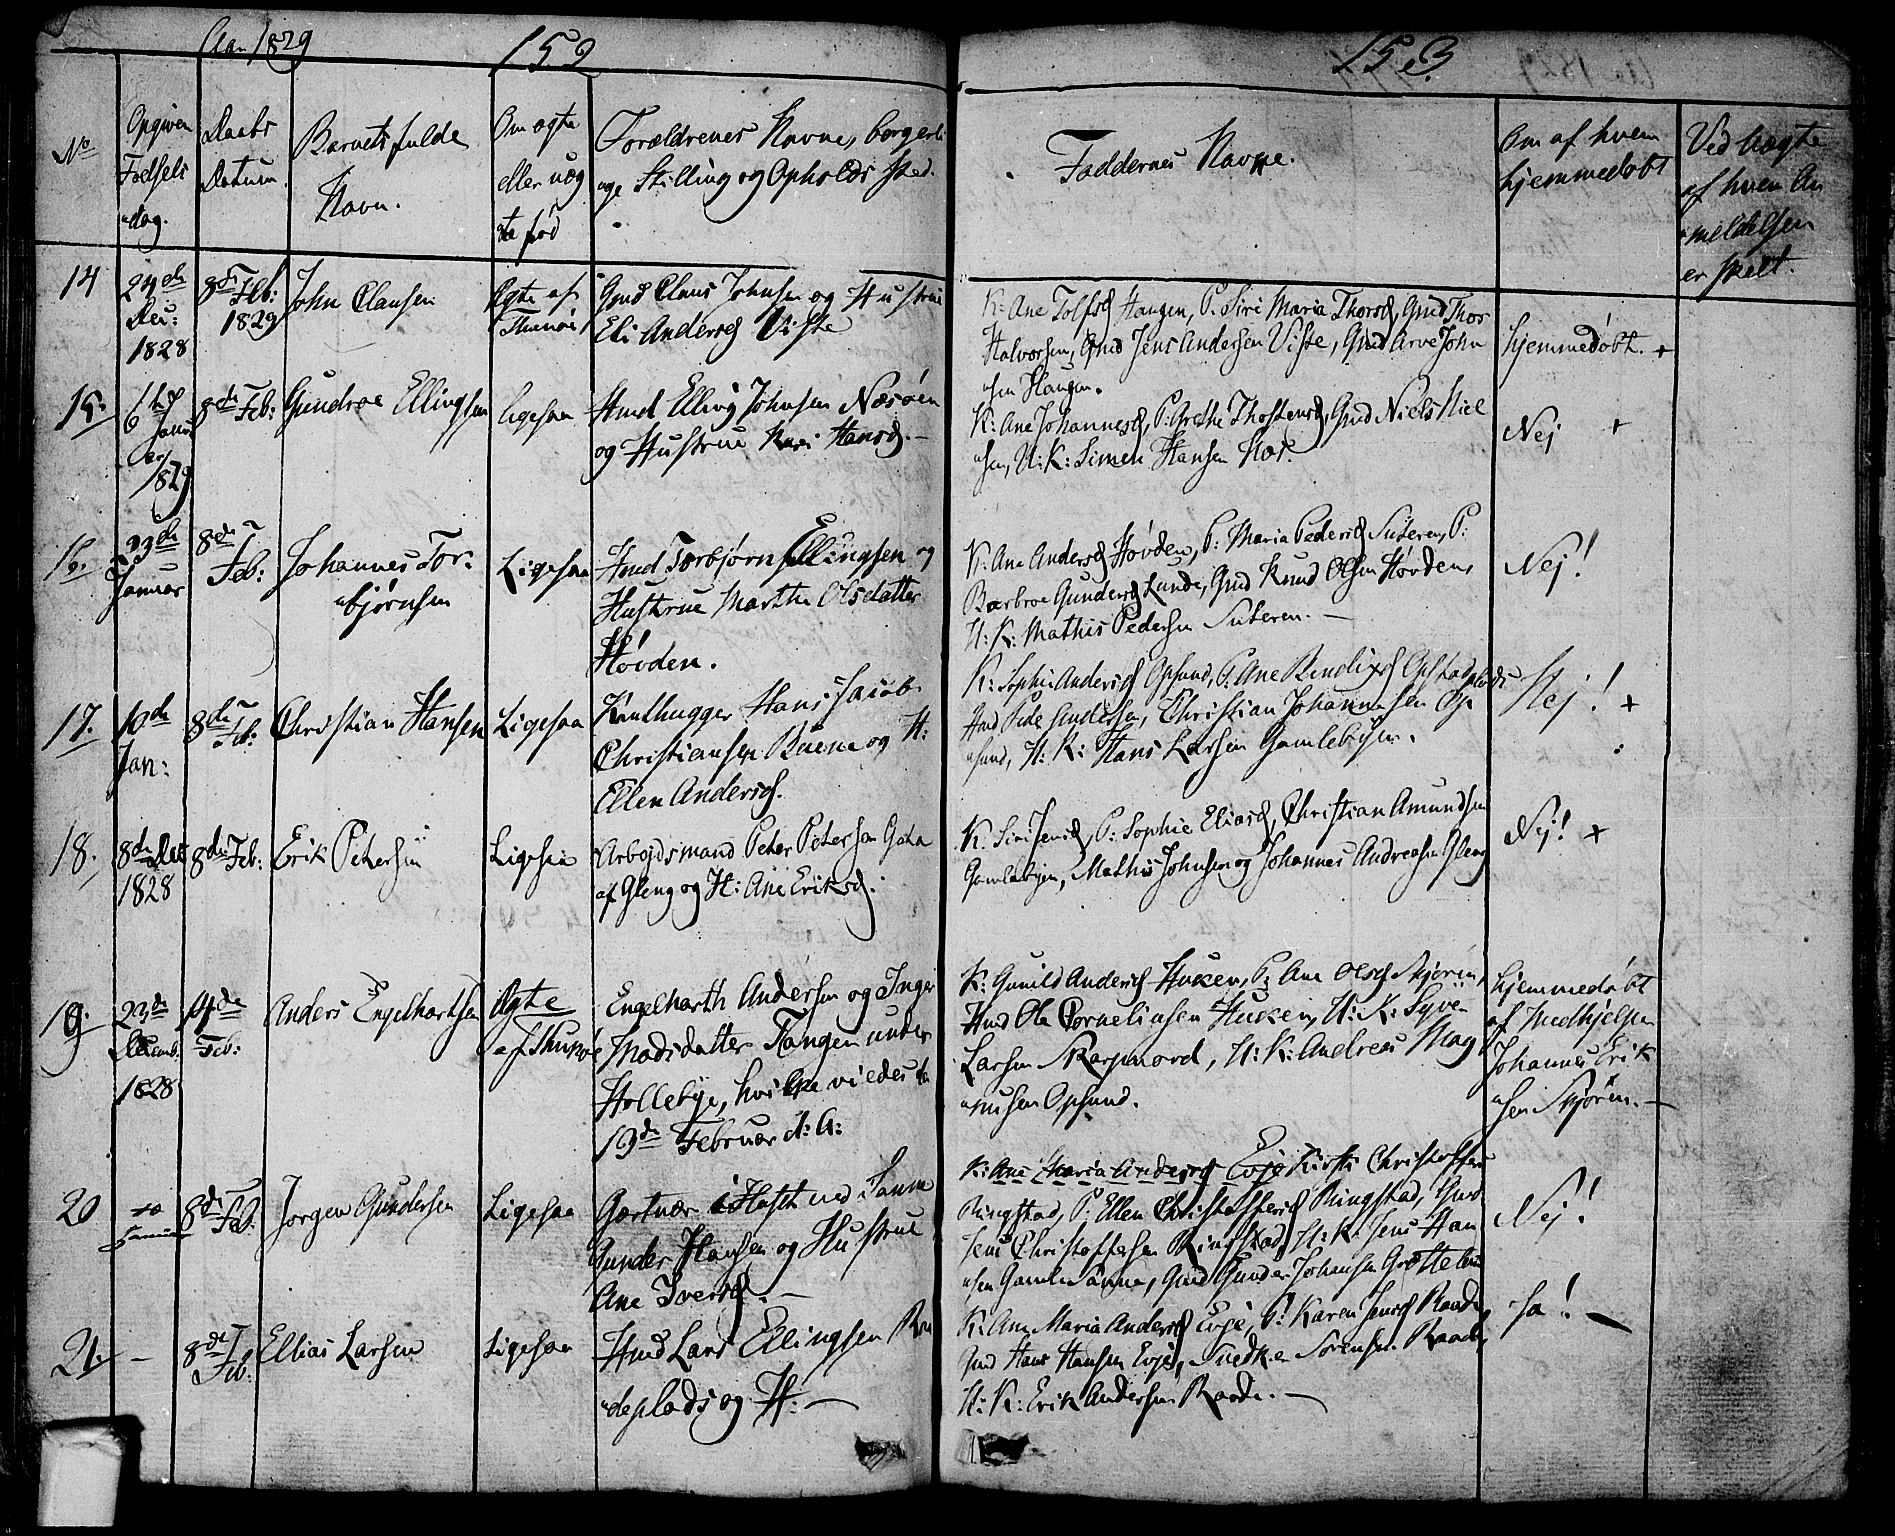 Aar 1829
152
153
No
Opgiven
Fødsels
dag.
Daabs
Datum.
Barnets fulde
Navn.
Om ægte
eller uæg
te fød
Forældrenes Navne, borgerli
ge Stilling og Opholds sted.
Faddernes Navne.
Om af hvem
hjemmedøbt
Ved uægte
af hvem An
meldelsen
er skeet.
14
24de
Dec:
1828
8de Feb:
1829
John Clausen
Ægte af
Gmd Claus Johnsen og Hustrue
Eli Andersd Viste
K: Ane Tolfsd Haugen, P. Siri Maria Thorsd, Gmd Thor
Halvorsen, Gmd Jens Andersen Viste, Gmd Arve John
sen Haugen.
hjemmedøbt. +
15.
6te
Janu
ar
1829
8de Feb:
Gundroe Ellingsen
ligesaa
Hmd Elling Johnsen Næsøen
og Hustrue Kari Hansd. –
K: Ane Johannesd, P: Grethe Thostensd, Gmd Niels Niel
sen, U: K: Simen Hansen Næs.
Nej +
16.
23de
Januar
8de
Feb:
Johannes Tor
bjørnsen
Ligesaa
Hmd Torbjørn Ellingsen og
Hustrue Marthe Olsdatter
Høvden.
K: Ane Andersd Høvden, P: Maria Pedersd Suteren, P:
Barbroe Gundersd Lunde, Gmd Knud Olsen Høvden,
U: K: Mathis Pedersen Suteren. –
Nej!
17.
10de
Jan:
8de
Feb:
Christian Hansen
Ligesaa
Hans Jacob
Christiansen Buene og H:
Ellen Andersd.
K: Sophie Andersd Opsund, P. Ane Bendixd Opstadplads
Hmd Peder Andersen, Christian Johannesen Op
sund, U: K: Hans Larsen Gamlebyen.
Nej! +
18.
8de Dec
1828
8de Feb:
Erik Petersen
Ligesaa
Arbejdsmand Peter Petersen Gata
af Gleng og H: Ane Eriksd.
K: Siri Jensd, P: Sophie Eliasd, Christian Amundsen
Gamlebyen, Mathis Johnsen og Johannes Andreasen Gleng
Nej! +
19.
23de
Decemb.
1828
14de
Feb:
Anders Engelhartsen
Ægte
Engelharth Andersen og Inger
Madsdatter Tangen under
Hollebye, hvilke viedes
13de Februar d: A:
K: Gunild Andersd Hucken, P: Ane Olsd Skjøren,
Hmd Ole Corneliusen Hucken, U: K: Syver
Larsen Skarpnord, U: K: Andreas Mag
nusen Opsund.
hjemmedøbt
af Medhjelper
Johannes Erik
sen Skjøren. –
20
Januar
8de
Feb.
Jørgen Gundersen
Ligesaa
Gartner i Hafslund
Gunder Hansen og Hustrue
Ane Iversd. –
K: Ane Maria Andersd Evje Kirsti Christoffers
Ringstad, P: Ellen Christoffersd Ringstad, Gmd
Jens Christoffersen Ringstad, U: K: Jens Han
sen Gamle Sanne, Gmd Gunder Johansen Grotte
Nej!
21.
–
8de
Feb:
Ellias Larsen
Ligesaa
Hmd Lars Ellingsen Raa
deplads og H: –
K: Ane Maria Andersd Evje, P: Karen Jensd Raade
Gmd Hans Hansen Evje, Snedker Sørensen Raade,
U: K: Erik Andersen Raade. –
Ja! –